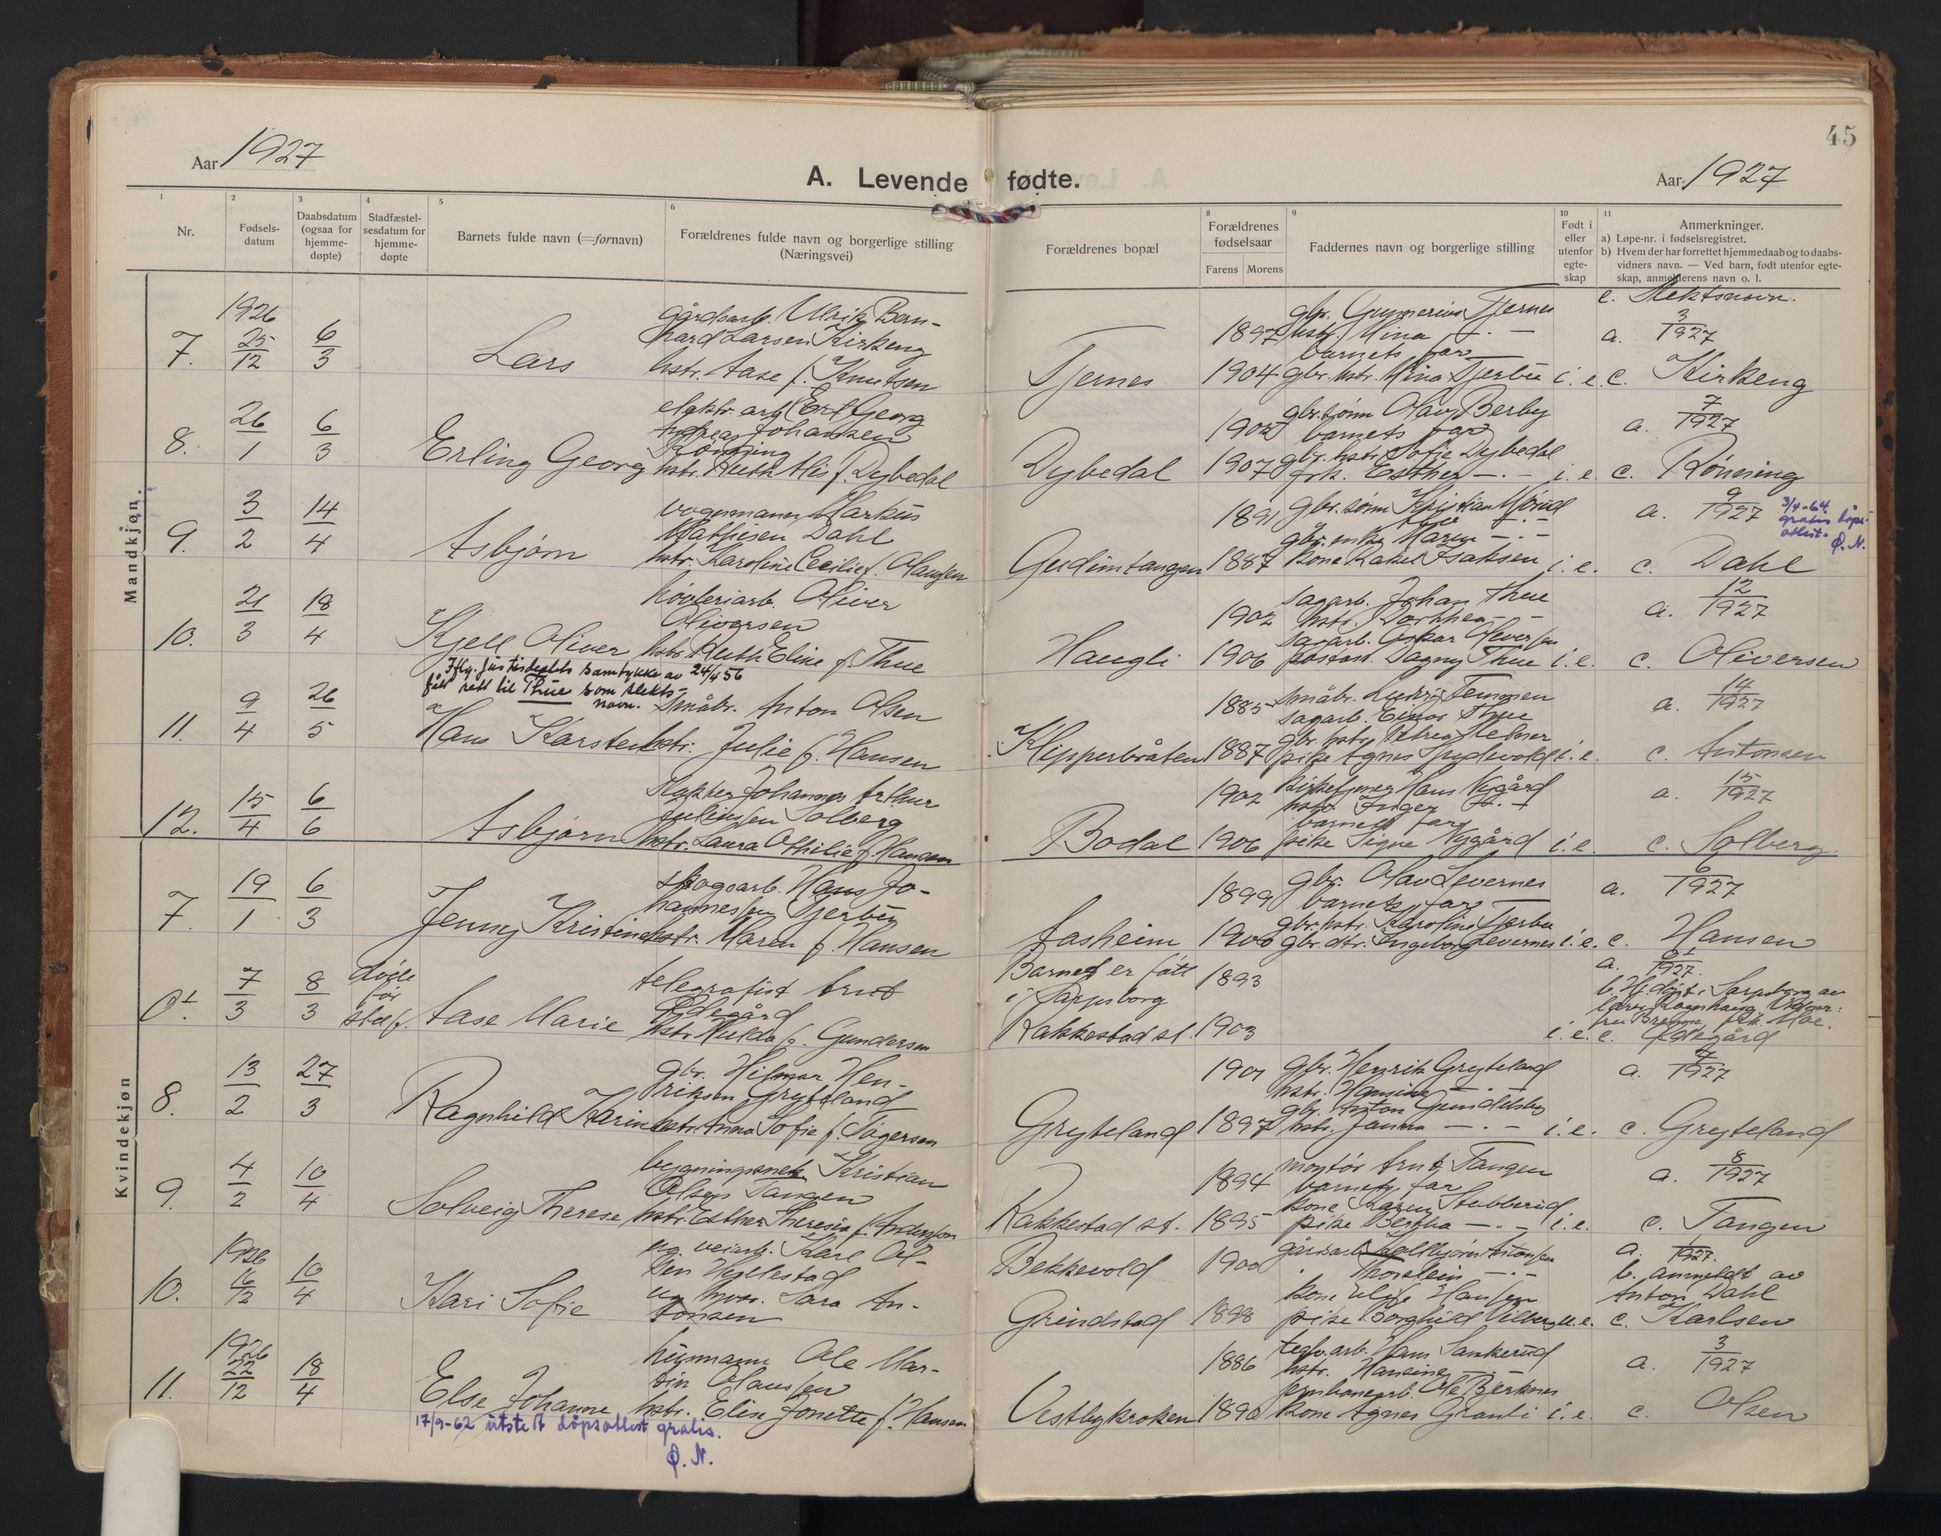 Aar 1927
A. Levende fødte.
Aar 1927
45
1 2 3 4 5 6 8 9 10 11
Nr.
Fødsels-
datum
Daabsdatum
(ogsaa for
hjemme-
døpte)
Stadfæstel-
sesdatum for
hjemme-
døpte
Barnets fulde navn (=fornavn)
Forældrenes fulde navn og borgerlige stilling
(Næringsvei)
Forældrenes bopæl
Forældrenes
fødselsaar
Farens Morens
Faddernes navn og borgerlige stilling
Født i
eller
utenfor
egte-
skap
Anmerkninger.
a) Løpe-nr. i fødselsregistret.
b) Hvem der har forrettet hjemmedaab og to daabs-
vidners navn. — Ved barn, født utenfor egte-
skap, anmelderens navn o. l.
c. Slektsnavn.
Mandkjøn.
7. 1926 25/12 6/3 Lars
gårdsarb. Ulrik Bern-
hard Larsen Kirkeng
hstr. Aase f. Knutsen
Tjernes 1897 1904
gbr. Gunnerius Tjernes
hstr. Mina —.—
barnets far
gbr. hstr. Mina Tjerbu i.e.
a. 3/1927
c. Kirkeng
8. 26/1 6/3 Erling Georg
elektr. arb. Georg
Andreas Johansen
Rønning
hstr. Ruth f. Dybedal
Dybedal 1902 1907
gbr. sønn Olav Berby
barnets far
gbr. hstr. Sofie Dybedal
frk. Esther —.— i.e.
a. 7/1927
c. Rønning
9. 3/2 14/4 Asbjørn
vognmann Markus
Mathisen Dahl
hstr. Karoline Cecilie f. Olausen
Gudimtangen 1891 1887
gbr. sønn Kristian Mørud
gbr. enke Maren —.—
kone Rakel Isaksen i.e.
a. 9/1927
3/4-64
gratis dåps-
attest.
Ø. N.
c. Dahl
10. 21/3 18/4 Kjell Oliver
høvleriarb. Oliver
Oliversen
hstr. Ruth Eline f. Thue
Haugli 1902 1906
sagarb. Johan Thue
hstr. Dorthea —.—
sagarb. Oskar Oliversen
Dagny Thue i.e.
a. 12/1927
c. Oliversen
Iflg. justisdepts samtykke av 24/4 56
fått rett til Thue som slekts-
navn.
11. 9/4 26/5 Hans Karsten
småbr. Anton Olsen
hstr. Julie f. Hansen
Klipperbråten 1885 1887
småbr. Ludvig
sagarb. Einar Thue
gbr. hstr. Petrea
pike Agnes i.e.
a. 14/1927
c. Antonsen
12. 15/4 6/6 Asbjørn
Johannes Arthur
Juliussen Solberg
hstr. Laura Othilie f. Hansen
Bodal 1902 1906
kirketjener Hans Nygård
hstr. Inger —.—
barnets far
pike Signe Nygård i.e.
a. 15/1927
c. Solberg
Kvindekjøn
7. 19/1 6/3 Jenny Kristine
skogsarb. Hans Jo-
hannessen Tjerbu
hstr. Maren f. Hansen
Aasheim 1899 1900
gbr. Olav Levernes
barnets far
gbr. hstr. Karoline Tjerbu
gbr. dtr. Ingeborg Levernes i.e.
a. 6/1927
c. Hansen
7/3 8/3 døde
før
stadf. Aase Marie
telegrafist Arnt
Ødegård
hstr. Hulda f. Gundersen
Barnet er født
i Sarpsborg
Rakkestad st. 1893 1903 i.e.
a. 1927.
b. Hj.døpt i Sarpsborg av
c. Ødegård
8. 13/2 27/3 Ragnhild Karin
gbr. Hilmar Hen-
riksen Gryteland
hstr. Anna Sofie f. Tøgersen
Gryteland 1901 1897
gbr. Henrik Gryteland
hstr. Hansine —.—
gbr. Anton Gundelsby
hstr. Janna —.— i.e.
a. 7/1927
c. Gryteland
9. 4/2 10/4 Solveig Therese
bygningssnek. Kristian
Olsen Tangen
hstr. Esther Theresia f. Andersson
Rakkestad st. 1894 1895
montør Arnt Tangen
barnets far
kone Karen Stubberud
pike Bertha —.— i.e.
a. 8/1927
c. Tangen
10. 1926 16/12 10/4 Kari Sofie
ug. veiarb. Karl Ol-
sen Hellestad
ug. Sara An-
tonsen
Bekkevold
Grindstad 1900 1898
gårdsarb. Antonsen
Thorstein —.—
kone Elise Hansen
pike Borghild u.e.
a. 1/1927.
b. anmeldt av
Anton Dahl
c. Karlsen
11. 1926 22/12 18/4 Else Johanne
husmann Ole Mar-
tin Olaussen
hstr. Elise Jonette f. Hansen
Vestbykroken 1886 1890
teglv. arb. Hans Sankerud
hstr. Hansine —
jernbanearb. Ole Bjerknes
kone Agnes Granli i.e.
a. 3/1927
c. Olsen
17/9-62 utstedt dåpsattest gratis.
Ø. N.